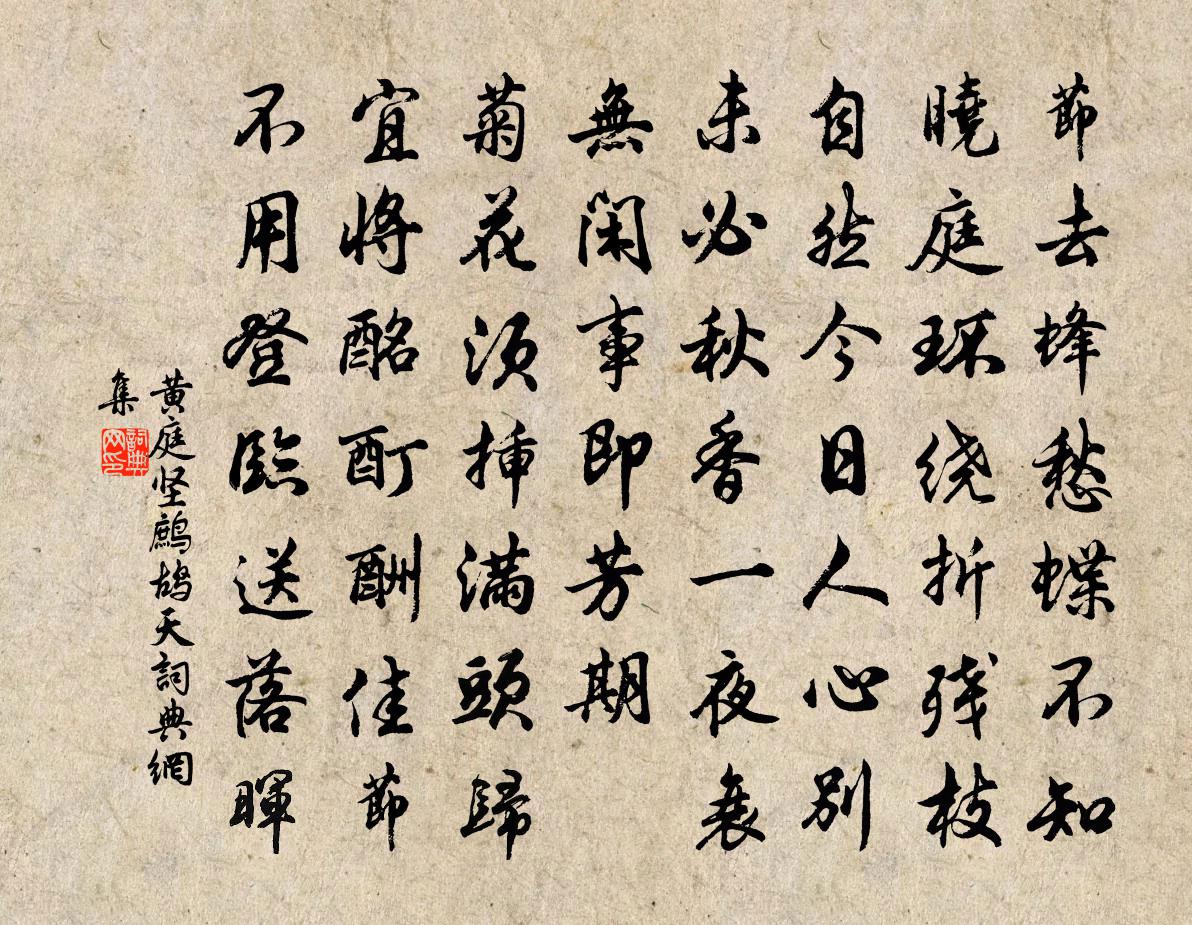 節去蜂愁蝶不知
曉庭环绕折残枝
自然今日人心別
未必秋香一夜衰
無閑事即芳期
菊花須插滿頭歸
宜將酩酊酬佳節
不用登臨送落暉
黄庭坚鷓鴣天詞典網
集
詞典网印